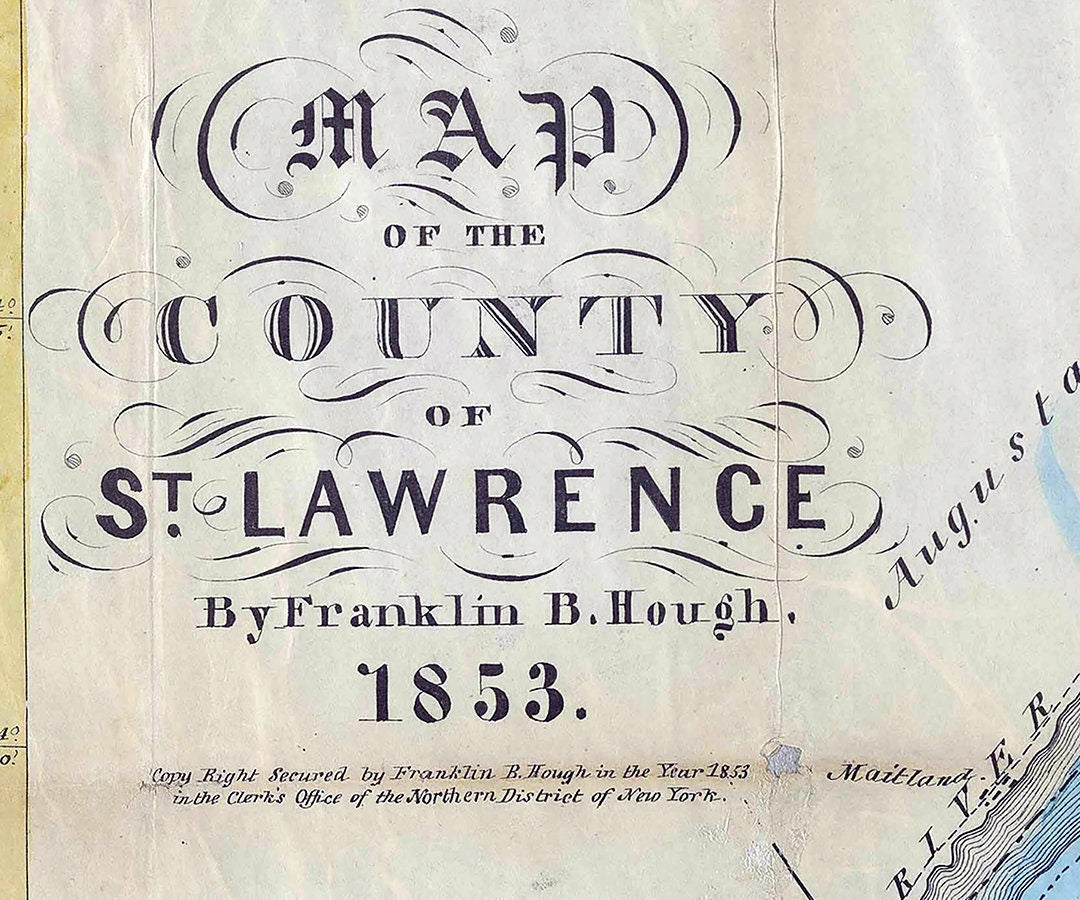 MAP
OF THE
COUNTY
OF
ST. LAWRENCE
By Franklin B. Hough.
1853.
Copy Right Secured by Franklin B. Hough in the Year 1853
in the Clerk's Office of the Northern District of New York.
Augusta
Maitland.
RIVER